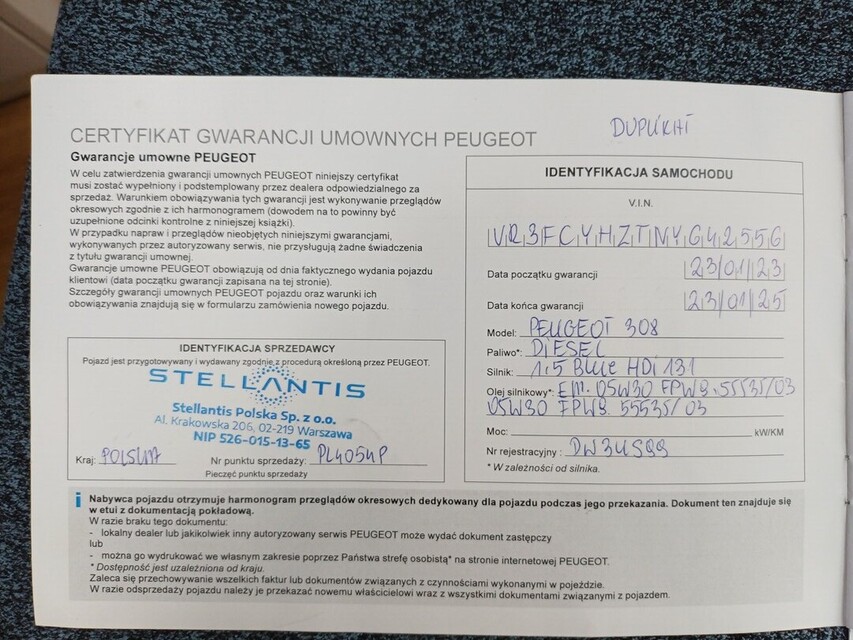 DUPLIKAT
CERTYFIKAT GWARANCJI UMOWNYCH PEUGEOT
Gwarancje umowne PEUGEOT
W celu zatwierdzenia gwarancji umownych PEUGEOT niniejszy certyfikat
musi zostać wypełniony i podstemplowany przez dealera odpowiedzialnego za
sprzedaż. Warunkiem obowiązywania tych gwarancji jest wykonywanie przeglądów
okresowych zgodnie z ich harmonogramem (dowodem na to powinny być
uzupełnione odcinki kontrolne z niniejszej książki).
W przypadku napraw i przeglądów nieobjętych niniejszymi gwarancjami,
wykonywanych przez autoryzowany serwis, nie przysługują żadne świadczenia
z tytułu gwarancji umownej.
Gwarancje umowne PEUGEOT obowiązują od dnia faktycznego wydania pojazdu
klientowi (data początku gwarancji zapisana na tej stronie).
Szczegóły gwarancji umownych PEUGEOT pojazdu oraz warunki ich
obowiązywania znajdują się w formularzu zamówienia nowego pojazdu.
IDENTYFIKACJA SPRZEDAWCY
Pojazd jest przygotowywany i wydawany zgodnie z procedurą określoną przez PEUGEOT.
STELLANTIS
Stellantis Polska Sp. z o.o.
Al. Krakowska 206, 02-219 Warszawa
NIP 526-015-13-65
Kraj: POLSKA Nr punktu sprzedaży: PL4054P
Pieczęć punktu sprzedaży
IDENTYFIKACJA SAMOCHODU
V.I.N.
VR3FCYHZTNYG42556
Data początku gwarancji 23/01/23
Data końca gwarancji 23/01/25
Model: PEUGEOT 308
Paliwo*: DIESEL
Silnik: 1.5 Blue HDi 131
Olej silnikowy*: EM. 05W30 FPW9.55535/03
05W30 FPW9.55535/03
Moc: kW/KM
Nr rejestracyjny: DW3US99
* W zależności od silnika.
i Nabywca pojazdu otrzymuje harmonogram przeglądów okresowych dedykowany dla pojazdu podczas jego przekazania. Dokument ten znajduje się
w etui z dokumentacją pokładową.
W razie braku tego dokumentu:
- lokalny dealer lub jakikolwiek inny autoryzowany serwis PEUGEOT może wydać dokument zastępczy
lub
- można go wydrukować we własnym zakresie poprzez Państwa strefę osobistą* na stronie internetowej PEUGEOT.
* Dostępność jest uzależniona od kraju.
Zaleca się przechowywanie wszelkich faktur lub dokumentów związanych z czynnościami wykonanymi w pojeździe.
W razie odsprzedaży pojazdu należy je przekazać nowemu właścicielowi wraz z wszystkimi dokumentami związanymi z pojazdem.